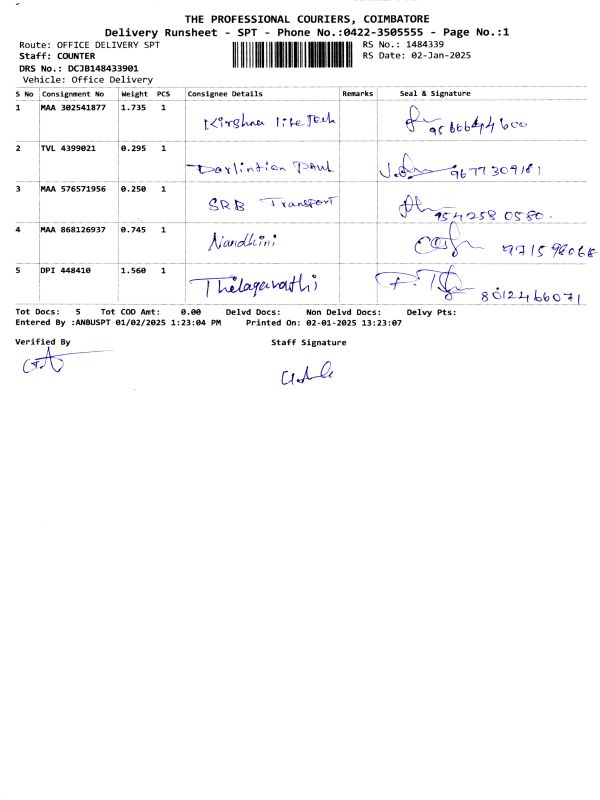 THE PROFESSIONAL COURIERS, COIMBATORE
Delivery Runsheet - SPT - Phone No.:0422-3505555 - Page No.:1
Route: OFFICE DELIVERY SPT RS No.: 1484339
Staff: COUNTER RS Date: 02-Jan-2025
DRS No.: DCJB148433901
Vehicle: Office Delivery
S No Consignment No Weight PCS Consignee Details Remarks Seal & Signature
1 MAA 302541877 1.735 1
2 TVL 4399021 0.295 1 Paul 9677309181
3 MAA 576571956 0.250 1 SRB Transport 9542580580.
4 MAA 868126937 0.745 1 Nandhini
5 DPI 448410 1.560 1 Thilagavathi 8012466071
Tot Docs: 5 Tot COD Amt: 0.00 Delvd Docs: Non Delvd Docs: Delvy Pts:
Entered By :ANBUSPT 01/02/2025 1:23:04 PM Printed On: 02-01-2025 13:23:07
Verified By Staff Signature